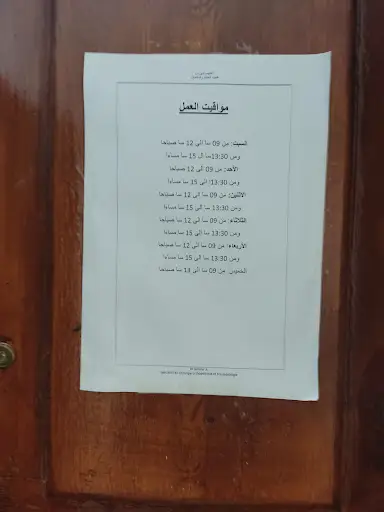 مواقيت العمل
السبت: من 09 سا الى 12 سا صباحا
ومن 13:30 سا ال 15 سا مساءا
الأحد: من 09 سا الى 12 صباحا
ومن 13:30 الى 15 سا مساءا
الاثنين: من 09 سا الى 12 سا صباحا
ومن 13:30 سا الى 15 سا مساءا
الثلاثاء: من 09 سا الى 12 سا صباحا
ومن 13:30 سا الى 15 سا مساءا
الأربعاء: من 09 سا الى 12 سا صباحا
ومن 13:30 سا الى 15 سا مساءا
الخميس: من 09 سا الى 13 سا صباحا